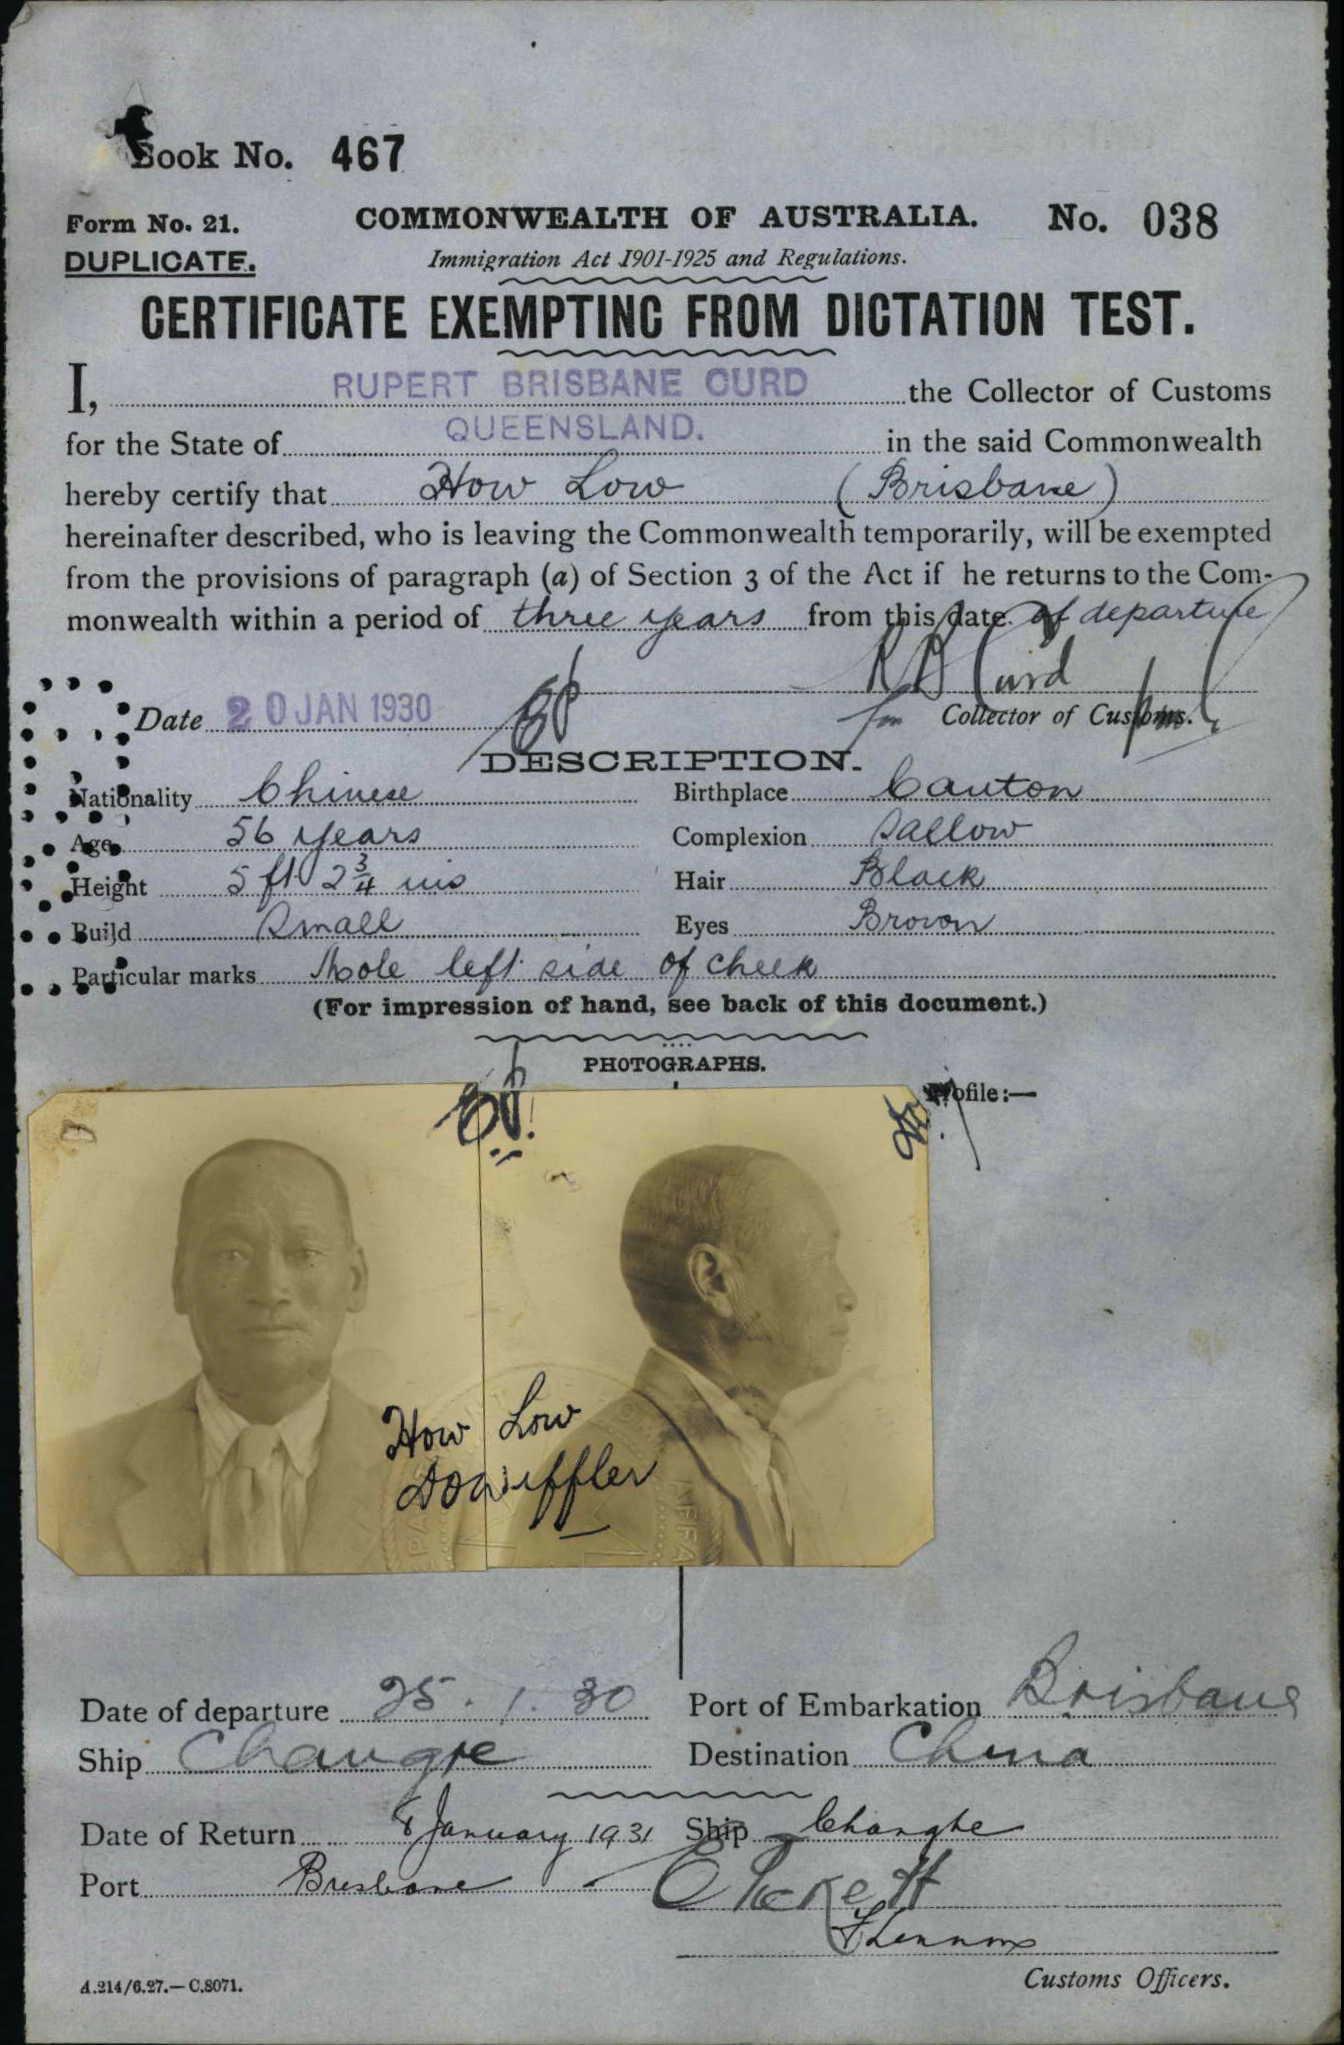 Book No. 467
Form No. 21. COMMONWEALTH OF AUSTRALIA. No. 038
DUPLICATE. Immigration Act 1901-1925 and Regulations.
CERTIFICATE EXEMPTING FROM DICTATION TEST.
I, RUPERT BRISBANE CURD the Collector of Customs
for the State of QUEENSLAND. in the said Commonwealth
hereby certify that How Low (Brisbane)
hereinafter described, who is leaving the Commonwealth temporarily, will be exempted
from the provisions of paragraph (a) of Section 3 of the Act if he returns to the Com-
monwealth within a period of three years from this date of departure
R B Curd
Date 20 JAN 1930 for Collector of Customs.
DESCRIPTION.
Nationality Chinese Birthplace Canton
Age 56 years Complexion Sallow
Height 5 ft 2 3/4 ins Hair Black
Build Small Eyes Brown
Particular marks Mole left side of cheek
(For impression of hand, see back of this document.)
PHOTOGRAPHS.
Profile:—
How Low
Date of departure 25.1.30 Port of Embarkation Brisbane
Ship Changte Destination China
Date of Return 8 January 1931 Ship Changte
Port Brisbane
Customs Officers.
A.214/6.27.—C.8071.